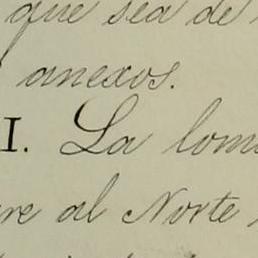 que sea de
anexos.
I. La loma
al Norte